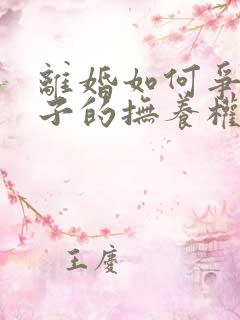 離婚如何爭
子的撫養權
王慶